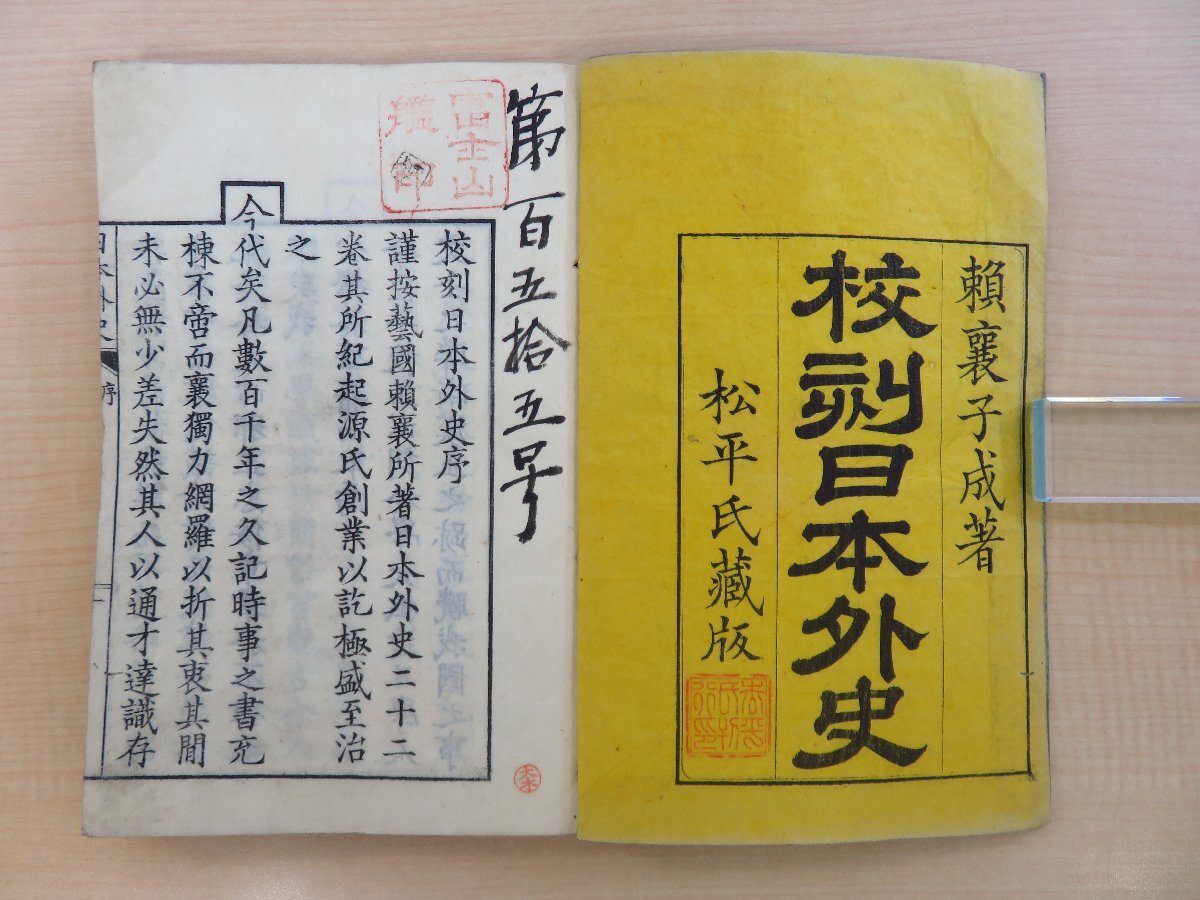 賴襄子成著
校刻日本外史
松平氏藏版
第百五拾五号
富士山
校刻日本外史序
謹按藝國賴襄所著日本外史二十二
卷其所紀起源氏創業以訖極盛至治
之
今
代矣凡數百千年之久記時事之書充
棟不啻而襄獨力網羅以折其衷其間
未必無少差失然其人以通才達識存
日本外史
序